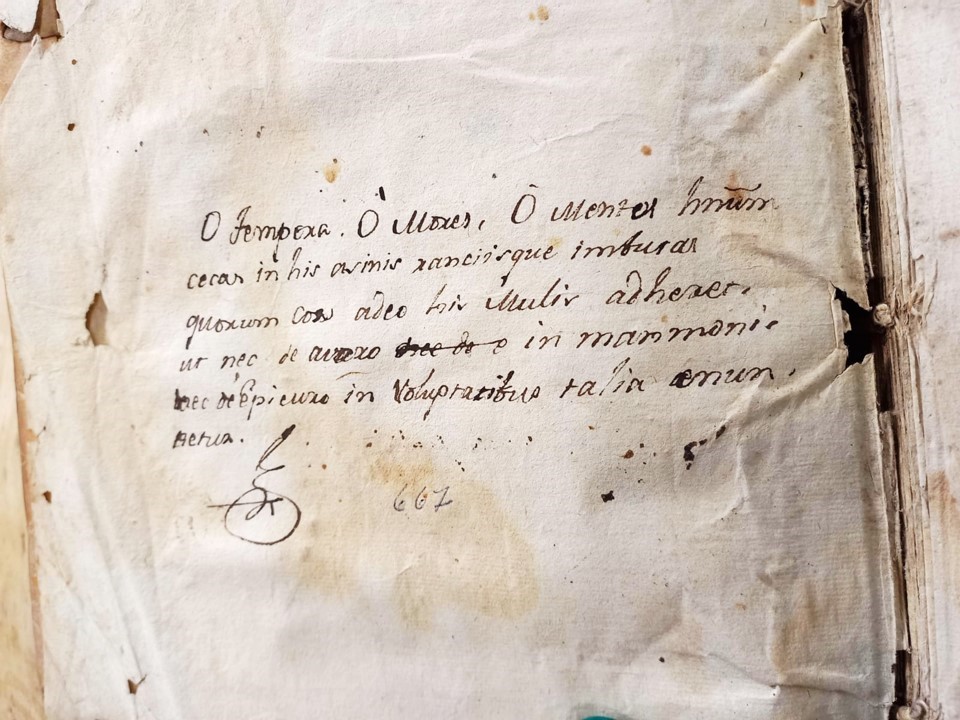 O tempora. O Mores, O Mentes hnūm
cecas in his asinis ranciisque imbutas
quorum cor adeo his Mulis adheret,
ut nec de avaro o in mammonis
nec de Epicuro in Voluptatibus talia enun,
tietur.
667